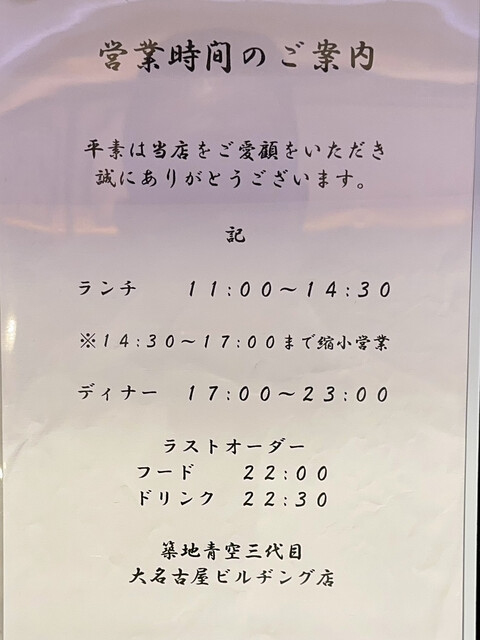 営業時間のご案内
平素は当店をご愛顧をいただき
誠にありがとうございます。
記
ランチ 11:00～14:30
※14:30～17:00まで縮小営業
ディナー 17:00～23:00
ラストオーダー
フード 22:00
ドリンク 22:30
築地青空三代目
大名古屋ビルヂング店